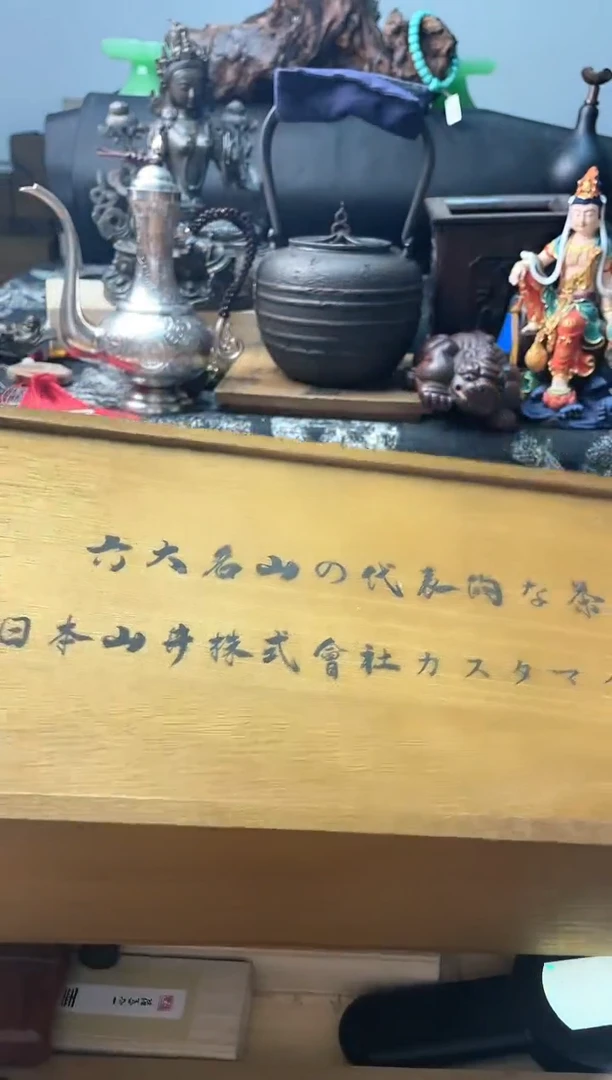 六大名山の代表的な茶
日本山井株式會社カスタマ